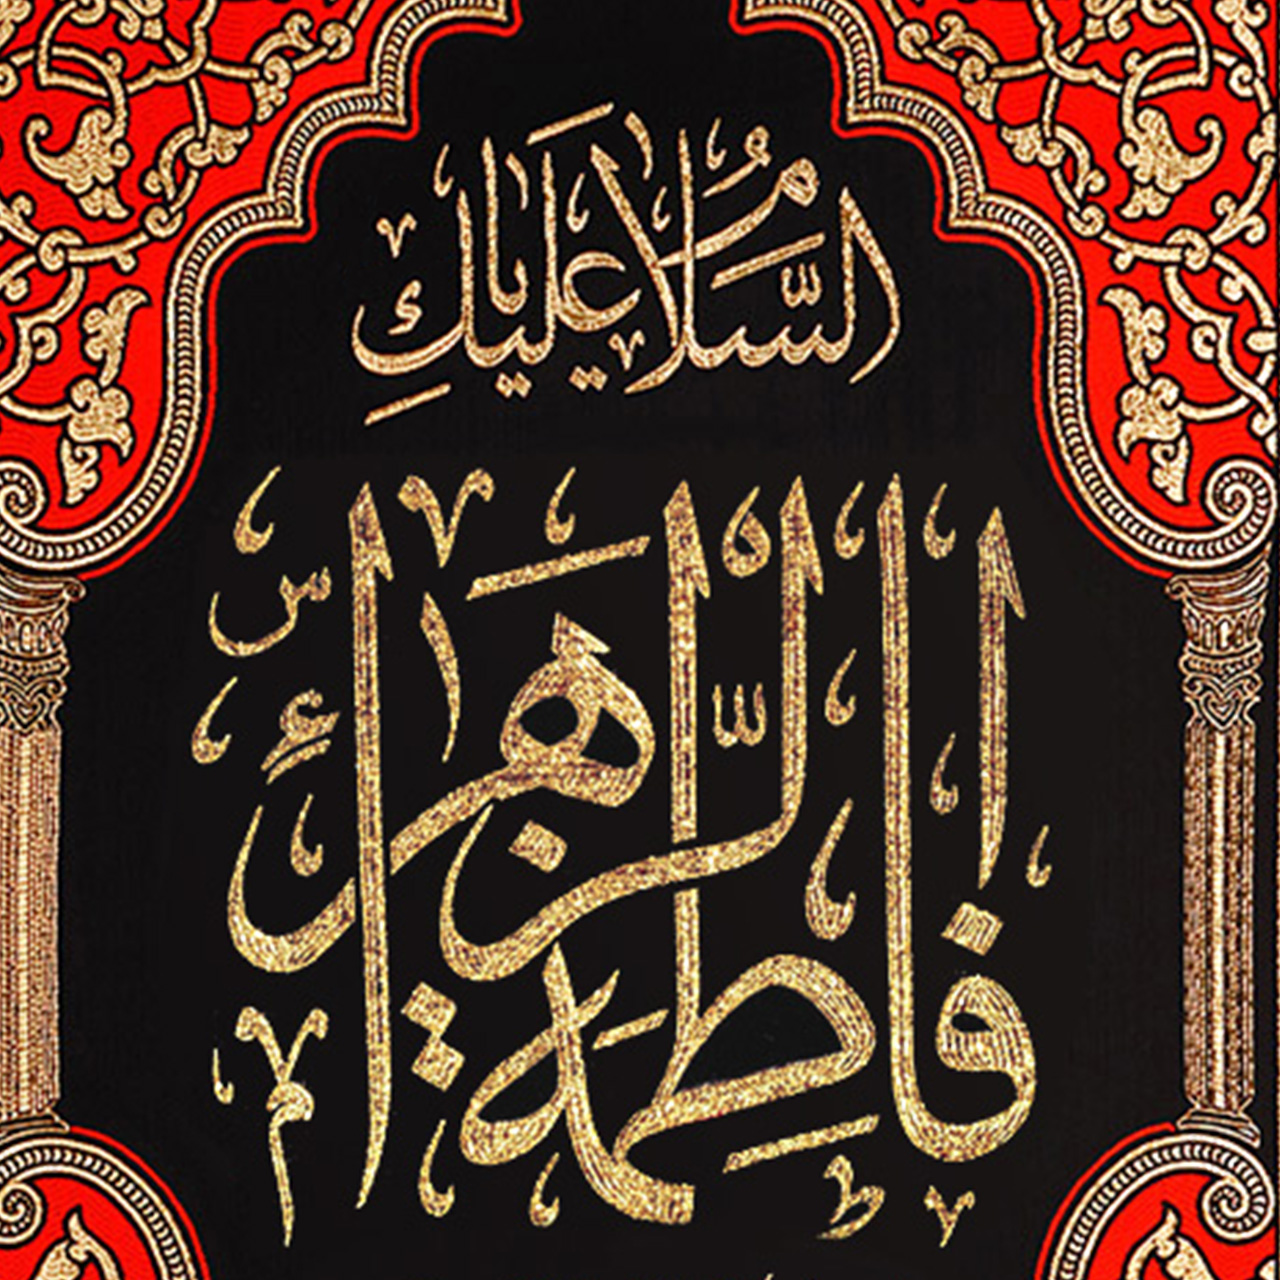 السَّلَامُ عَلَيْكِ
فَاطِمَةُ الزَّهْرَاءُ